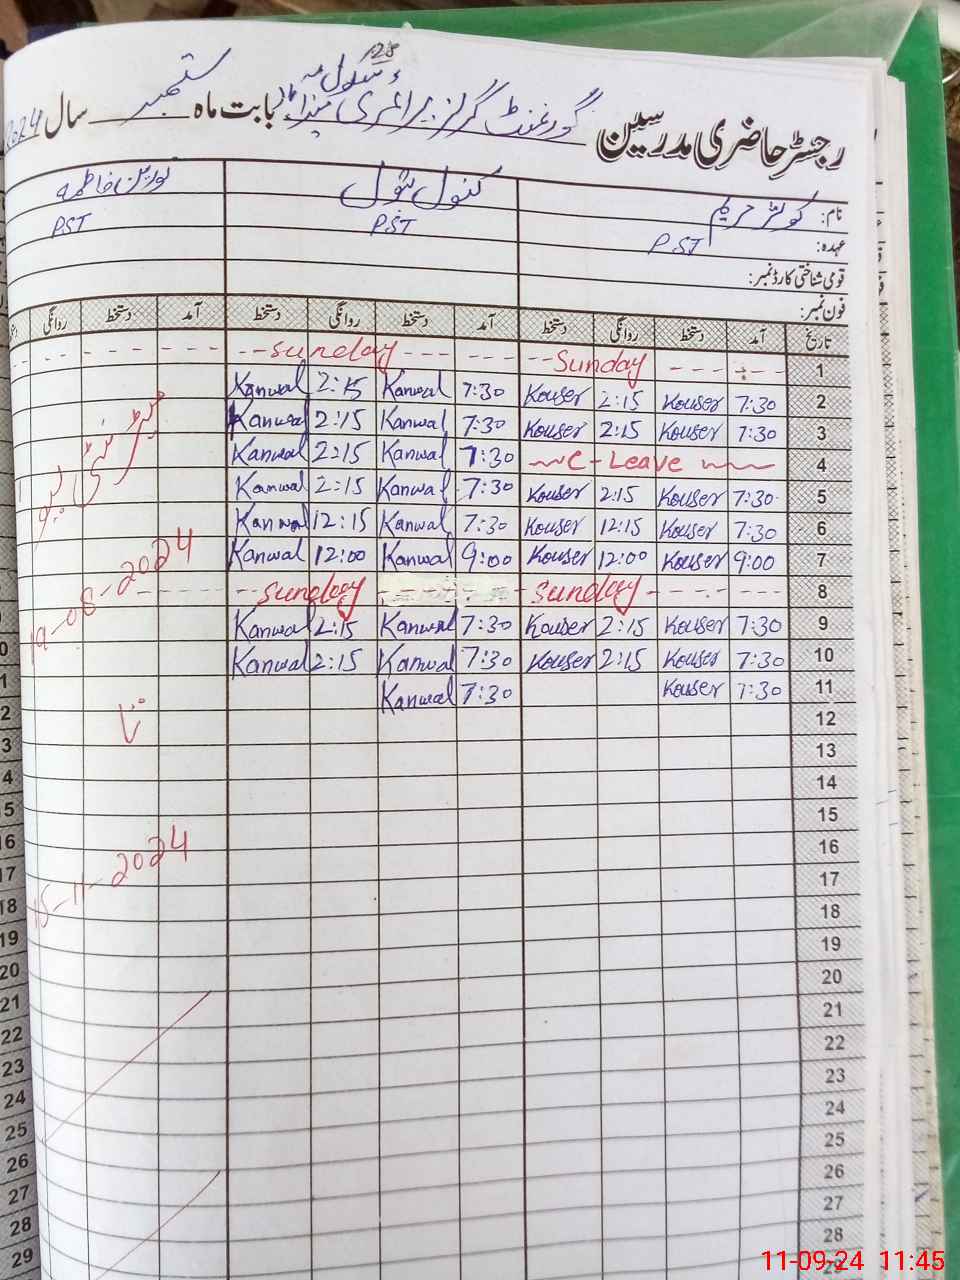 رجسٹر حاضری مدرسین گورنمنٹ گرلز پرائمری سکول بابت ماہ ستمبر سال 2024
نام: کوثر مریم کنول بتول نورین فاطمہ
عہدہ: PST PST PST
قومی شناختی کارڈ نمبر:
فون نمبر:
تاریخ آمد دستخط روانگی دستخط آمد دستخط روانگی دستخط آمد دستخط روانگی
1 Sunday sunday
2 7:30 Kouser 2:15 Kouser 7:30 Kanwal 2:15 Kanwal
3 7:30 Kouser 2:15 Kouser 7:30 Kanwal 2:15 Kanwal
4 C-Leave 7:30 Kanwal 2:15 Kanwal
5 7:30 Kouser 2:15 Kouser 7:30 Kanwal 2:15 Kanwal
6 7:30 Kouser 12:15 Kouser 7:30 Kanwal 12:15 Kanwal
7 9:00 Kouser 12:00 Kouser 9:00 Kanwal 12:00 Kanwal
8 sunday sunday
9 7:30 Kouser 2:15 Kouser 7:30 Kanwal 2:15 Kanwal
10 7:30 Kouser 2:15 Kouser 7:30 Kanwal 2:15 Kanwal
11 7:30 Kouser 7:30 Kanwal
12
13
14
15
16
17
18
19
20
21
22
23
24
25
26
27
28
29
میٹرنٹی لیو
19-08-2024
تا
15-11-2024
11-09-24 11:45